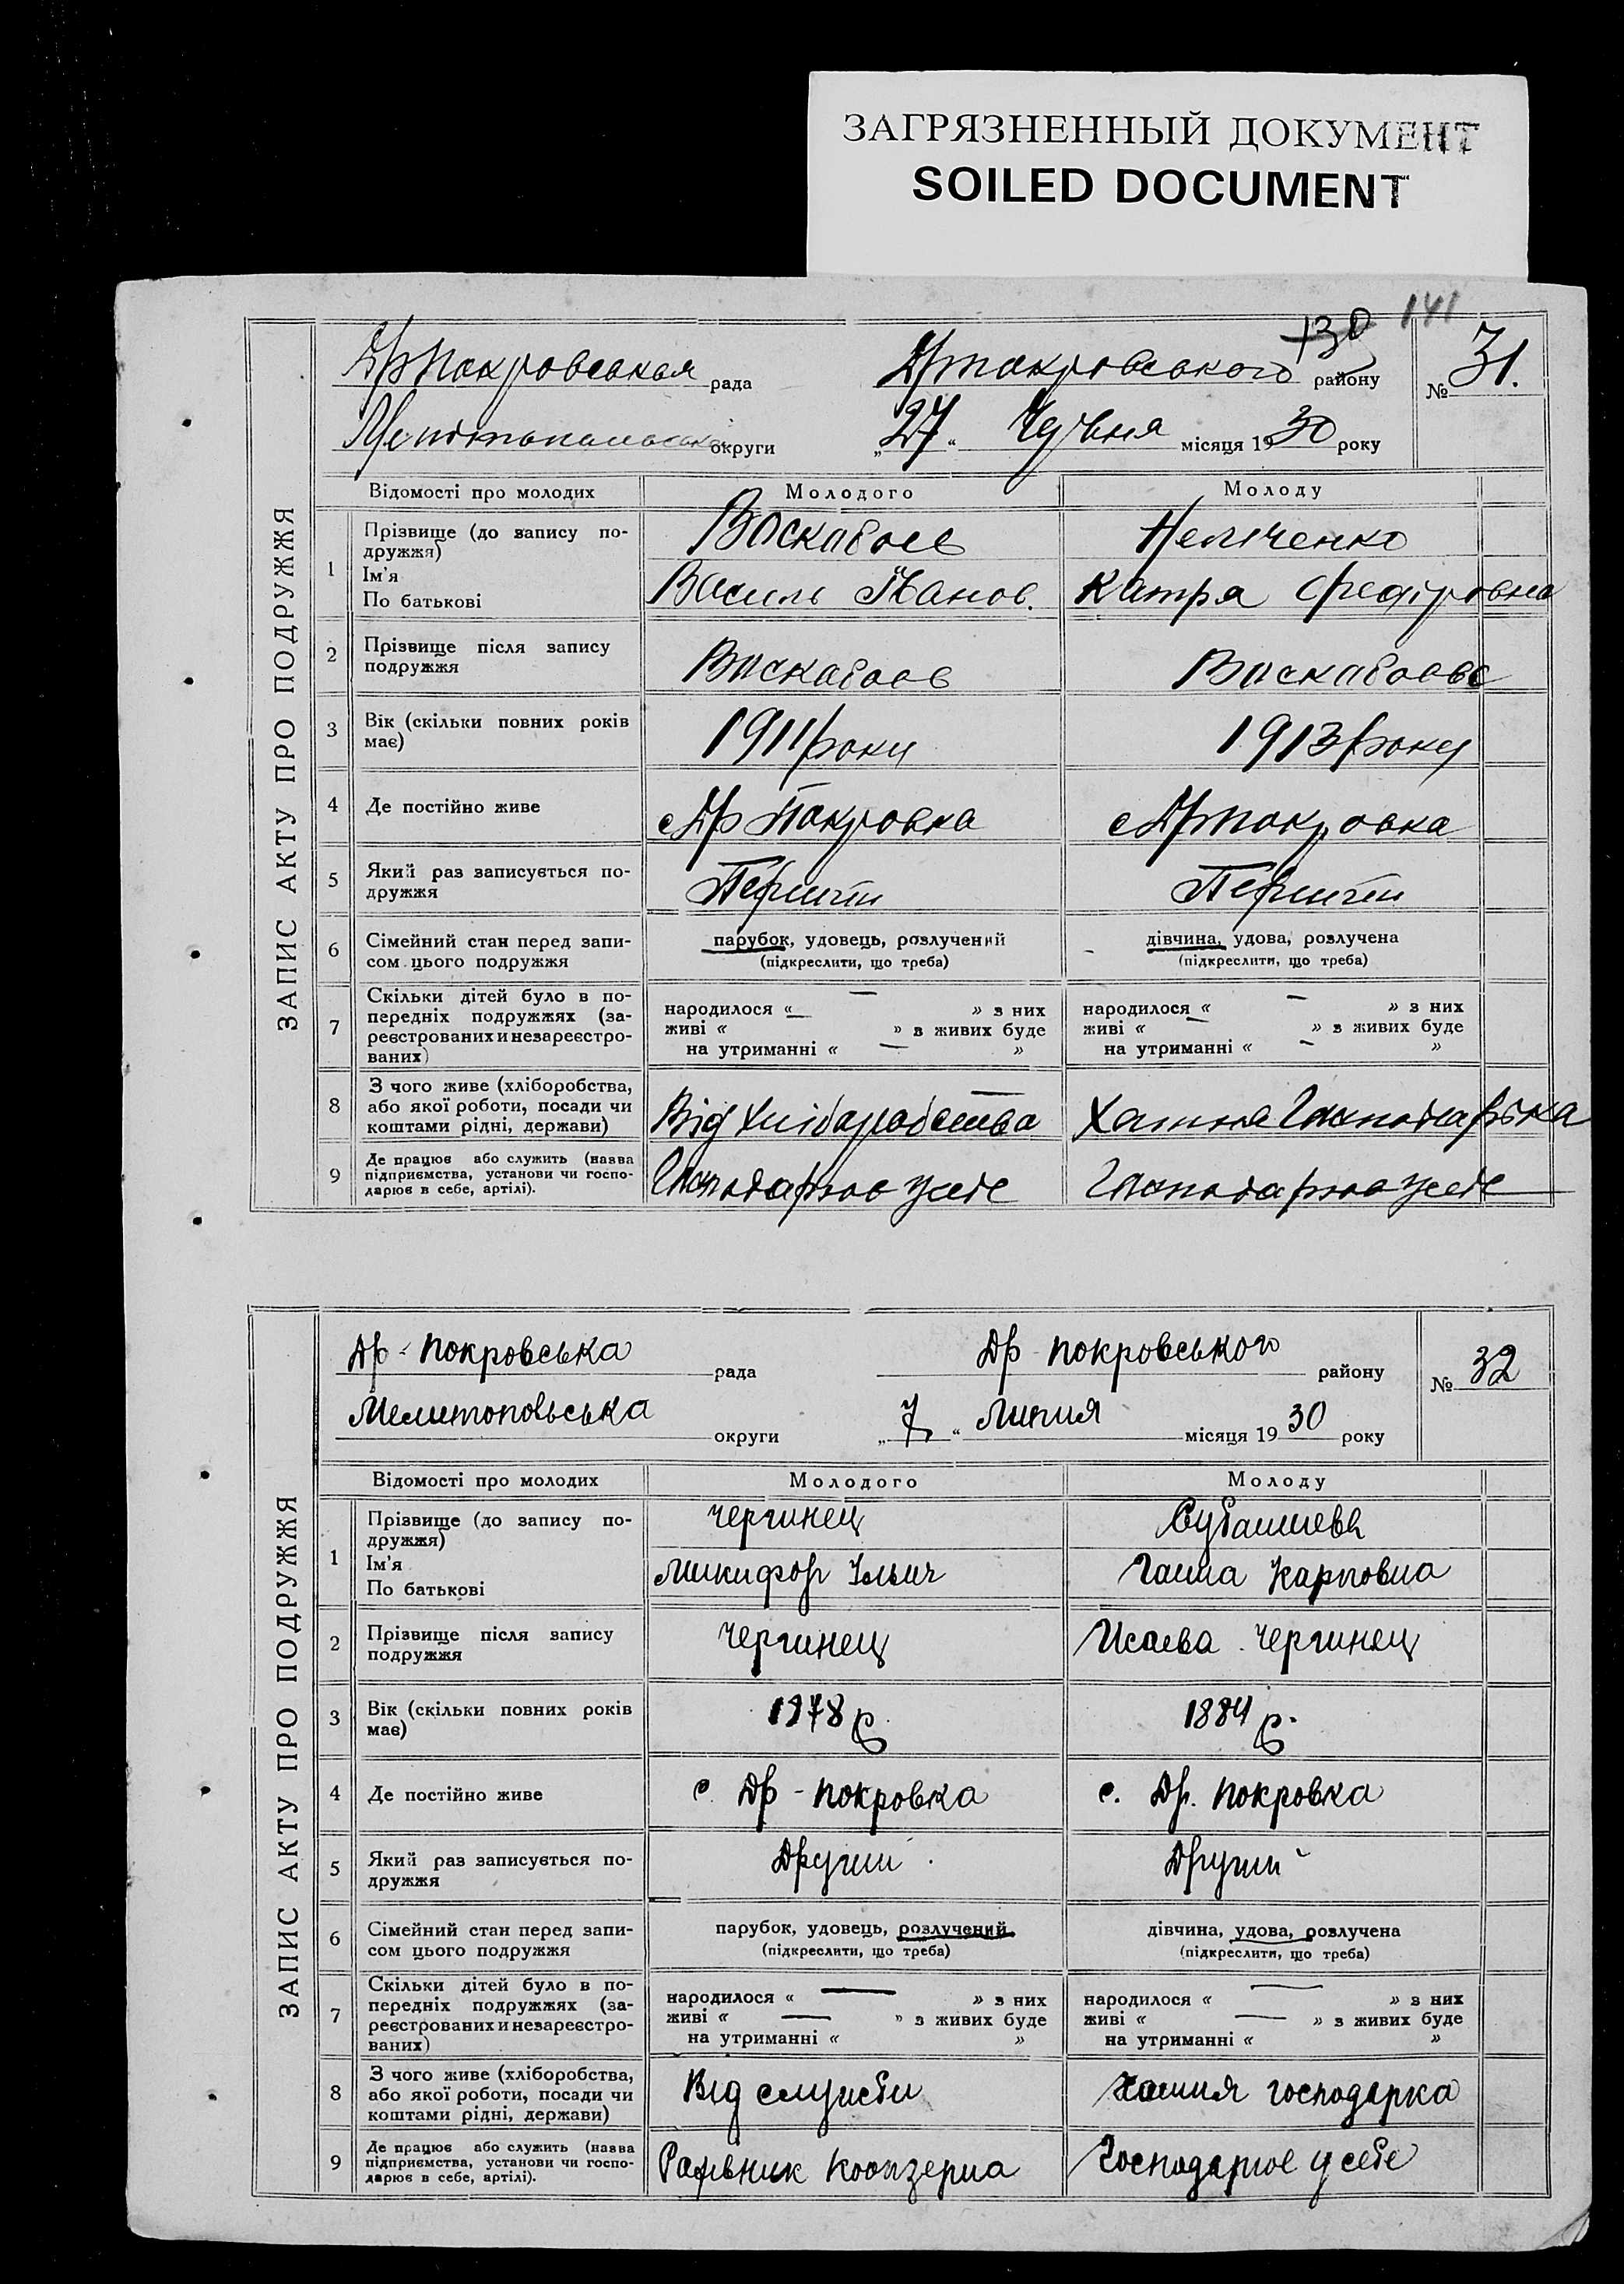 ЗАГРЯЗНЕННЫЙ ДОКУМЕНТ
SOILED DOCUMENT
141
130
ЗАПИС АКТУ ПРО ПОДРУЖЖЯ
рада району № 31.
округи „27“ Червня місяця 1930 року
Відомості про молодих Молодого Молоду
1 Прізвище (до запису подружжя) Воскабоев
Ім'я По батькові Василь Іванов. Катря Федіровна
2 Прізвище після запису подружжя Воскабоев Воскабоева
3 Вік (скільки повних років має) 1911 року 1913 року
4 Де постійно живе с Др Покровка с Др Покровка
5 Який раз записується подружжя Перший Перший
6 Сімейний стан перед записом цього подружжя парубок, удовець, розлучений дівчина, удова, розлучена
(підкреслити, що треба) (підкреслити, що треба)
7 Скільки дітей було в попередніх подружжях (зареєстрованих и незареєстрованих)
народилося « — » з них народилося « — » з них
живі « » з живих буде живі « » з живих буде
на утриманні « — » на утриманні « — »
8 З чого живе (хліборобства, або якої роботи, посади чи коштами рідні, держави) Від Хлібаробства Хатня Гасподарька
9 Де працює або служить (назва підприємства, установи чи господарює в себе, артілі). Гасподарює усебе Гасподарює усебе
ЗАПИС АКТУ ПРО ПОДРУЖЖЯ
Др - Покровська рада Др - Покровського району № 32
Мелитопольська округи „7“ Липня місяця 1930 року
Відомості про молодих Молодого Молоду
1 Прізвище (до запису подружжя) Чергинец
Ім'я По батькові Микифор Ільич Ганна Карповна
2 Прізвище після запису подружжя Чергинец Исаева Чергинец
3 Вік (скільки повних років має) 1878 р. 1884 р.
4 Де постійно живе с. Др - Покровка с. Др. Покровка
5 Який раз записується подружжя Другий Другий
6 Сімейний стан перед записом цього подружжя парубок, удовець, розлучений дівчина, удова, розлучена
(підкреслити, що треба) (підкреслити, що треба)
7 Скільки дітей було в попередніх подружжях (зареєстрованих и незареєстрованих)
народилося « — » з них народилося « — » з них
живі « — » з живих буде живі « — » з живих буде
на утриманні « » на утриманні « »
8 З чого живе (хліборобства, або якої роботи, посади чи коштами рідні, держави) Від служби Хатня господарка
9 Де працює або служить (назва підприємства, установи чи господарює в себе, артілі). Господарює у себе